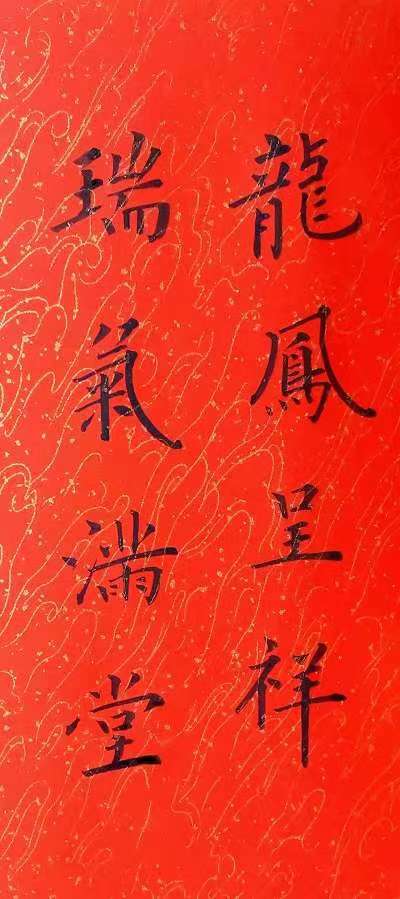 龍鳳呈祥
瑞氣滿堂